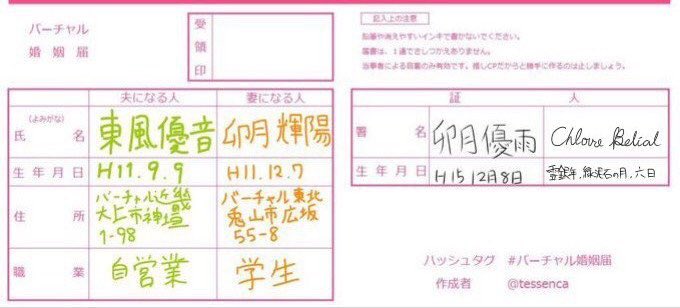 バーチャル
婚姻届
受領印
記入上の注意
鉛筆や消えやすいインキで書かないでください。
届書は、1通でさしつかえありません。
当事者による自署のみ有効です。推しCPだからと勝手に作るのは止しましょう。
夫になる人 妻になる人
(よみがな)
氏名 東風優音 卯月輝陽
生年月日 H11.9.9 H11.12.7
住所 バーチャル近畿 バーチャル東北
大上市神壇 兎山市広坂
1-98 55-8
職業 自営業 学生
証人
署名 卯月優雨 Chlowe Belial
生年月日 H15 12月8日 霊銀年、緑光石の月、六日
ハッシュタグ #バーチャル婚姻届
作成者 @tessenca